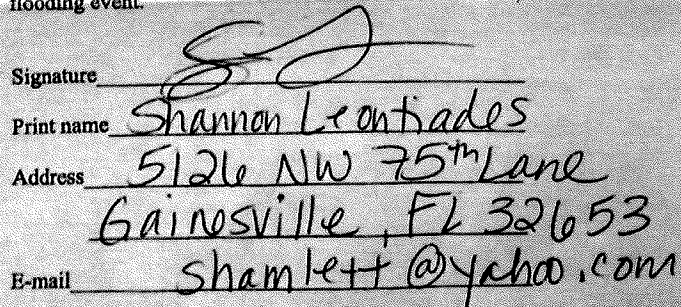 flooding event.
Signature
Print name Shannon Leontiades
Address 5126 NW 75th Lane
Gainesville, FL 32653
E-mail shamlett@yahoo.com